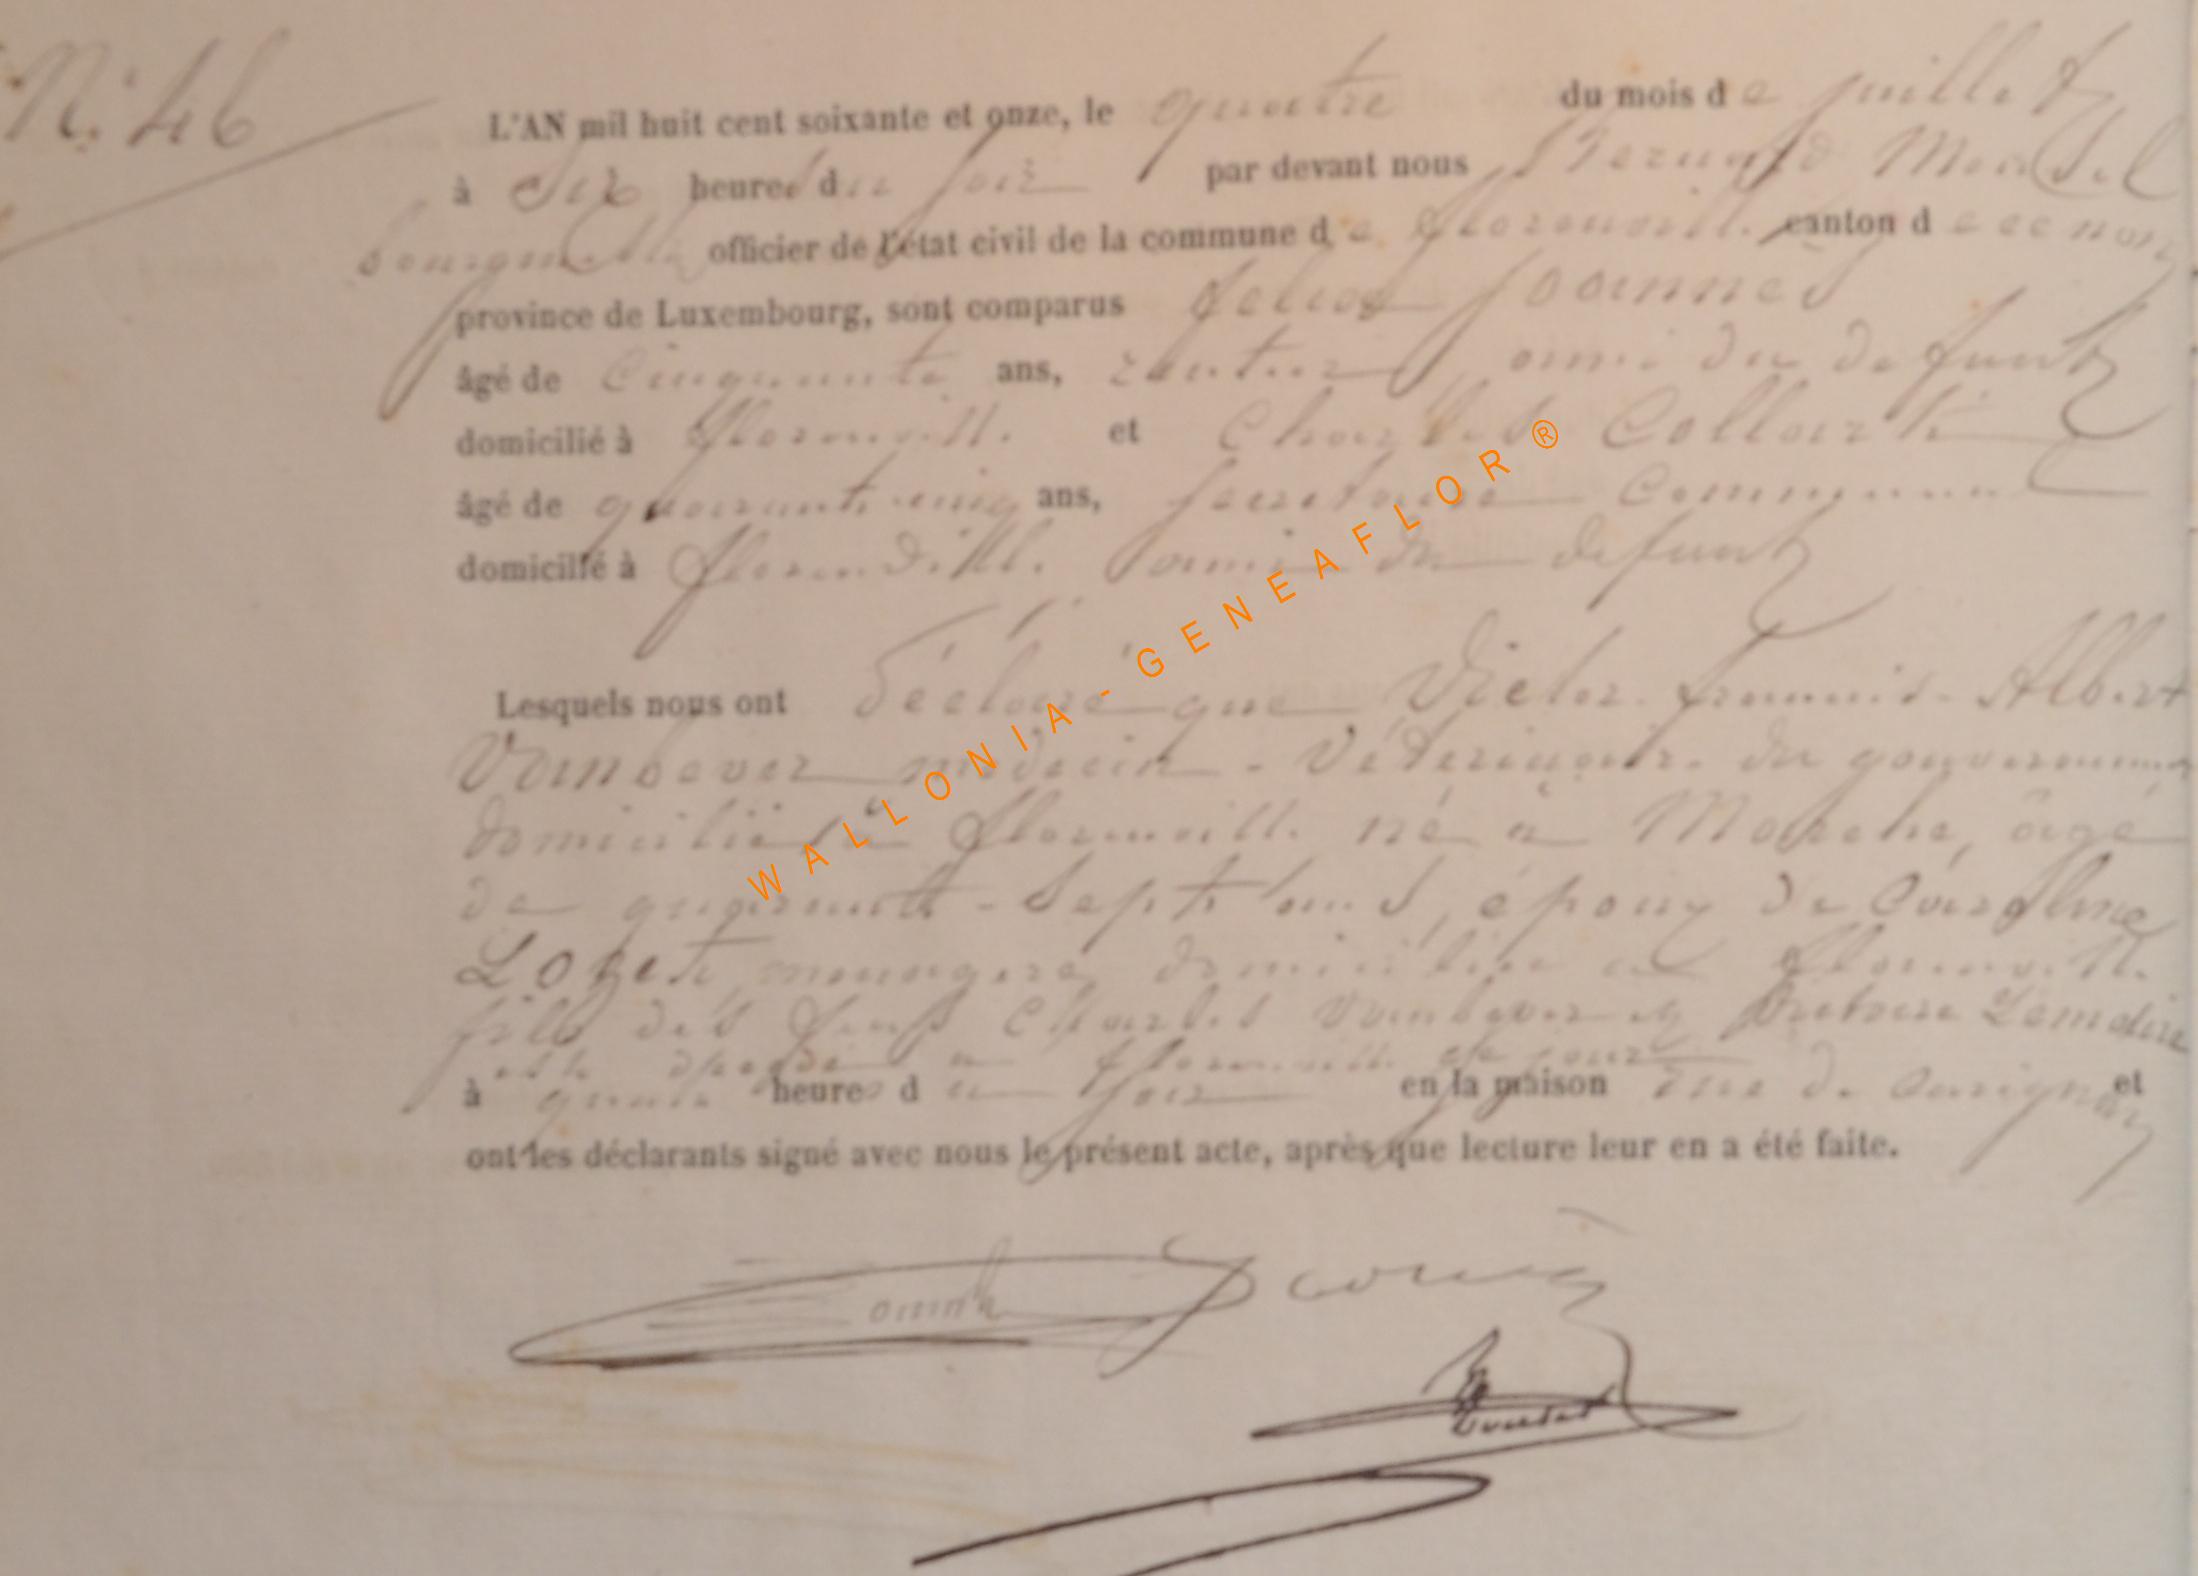 N° 46
L'AN mil huit cent soixante et onze, le quatre du mois de juillet
à Six heures du soir par devant nous Bernard
officier de l'état civil de la commune de florenville canton
province de Luxembourg, sont comparus Joannès
âgé de Cinquante ans, rentier, ami du defunt
domicilié à florenville et Charles Collart
âgé de quarante cinq ans, secretaire Communal
domicilié à florenville ami du defunt
Lesquels nous ont déclaré que Victor françois Albert
Vanbever médecin - Vétérinaire du gouvernement
domicilié à florenville né à Marche, âgé
de quarante-Sept ans, époux de
menagere domiciliée à florenville
fils des feus Charles Vanbever et Victoire Lemaire
est décédé à florenville ce jour
à quatre heures du soir en la maison rue de Carignan et
ont les déclarants signé avec nous le présent acte, après que lecture leur en a été faite.
WALLONIA - GENEAFLOR ®